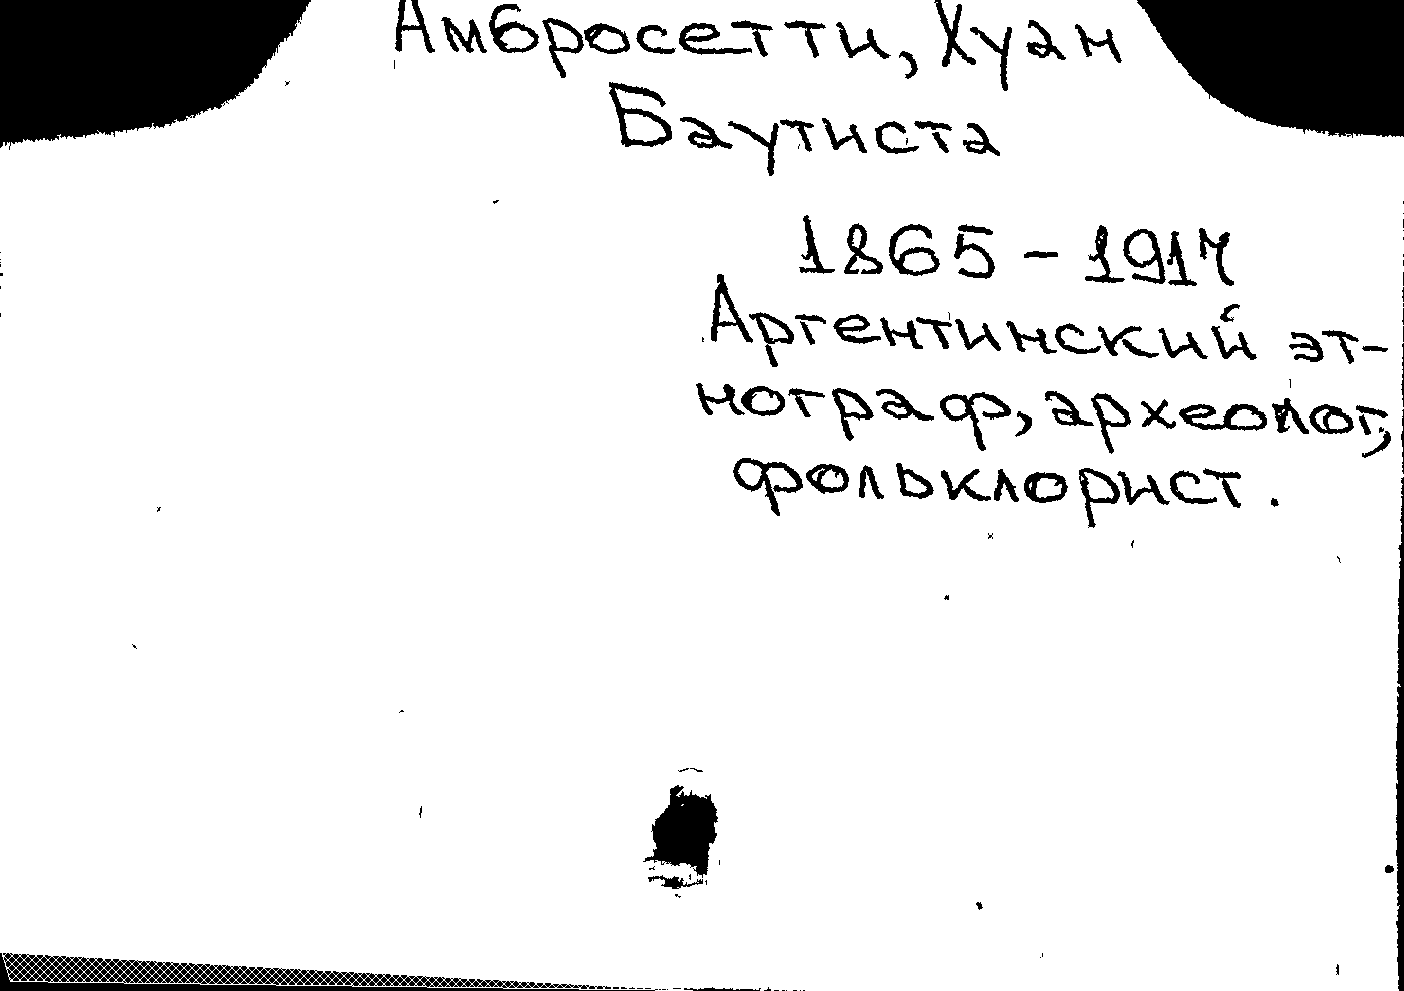 Амбросетти, Хуан
Баутиста
1865 - 1917
Аргентинский эт-
нограф, археолог,
фольклорист.